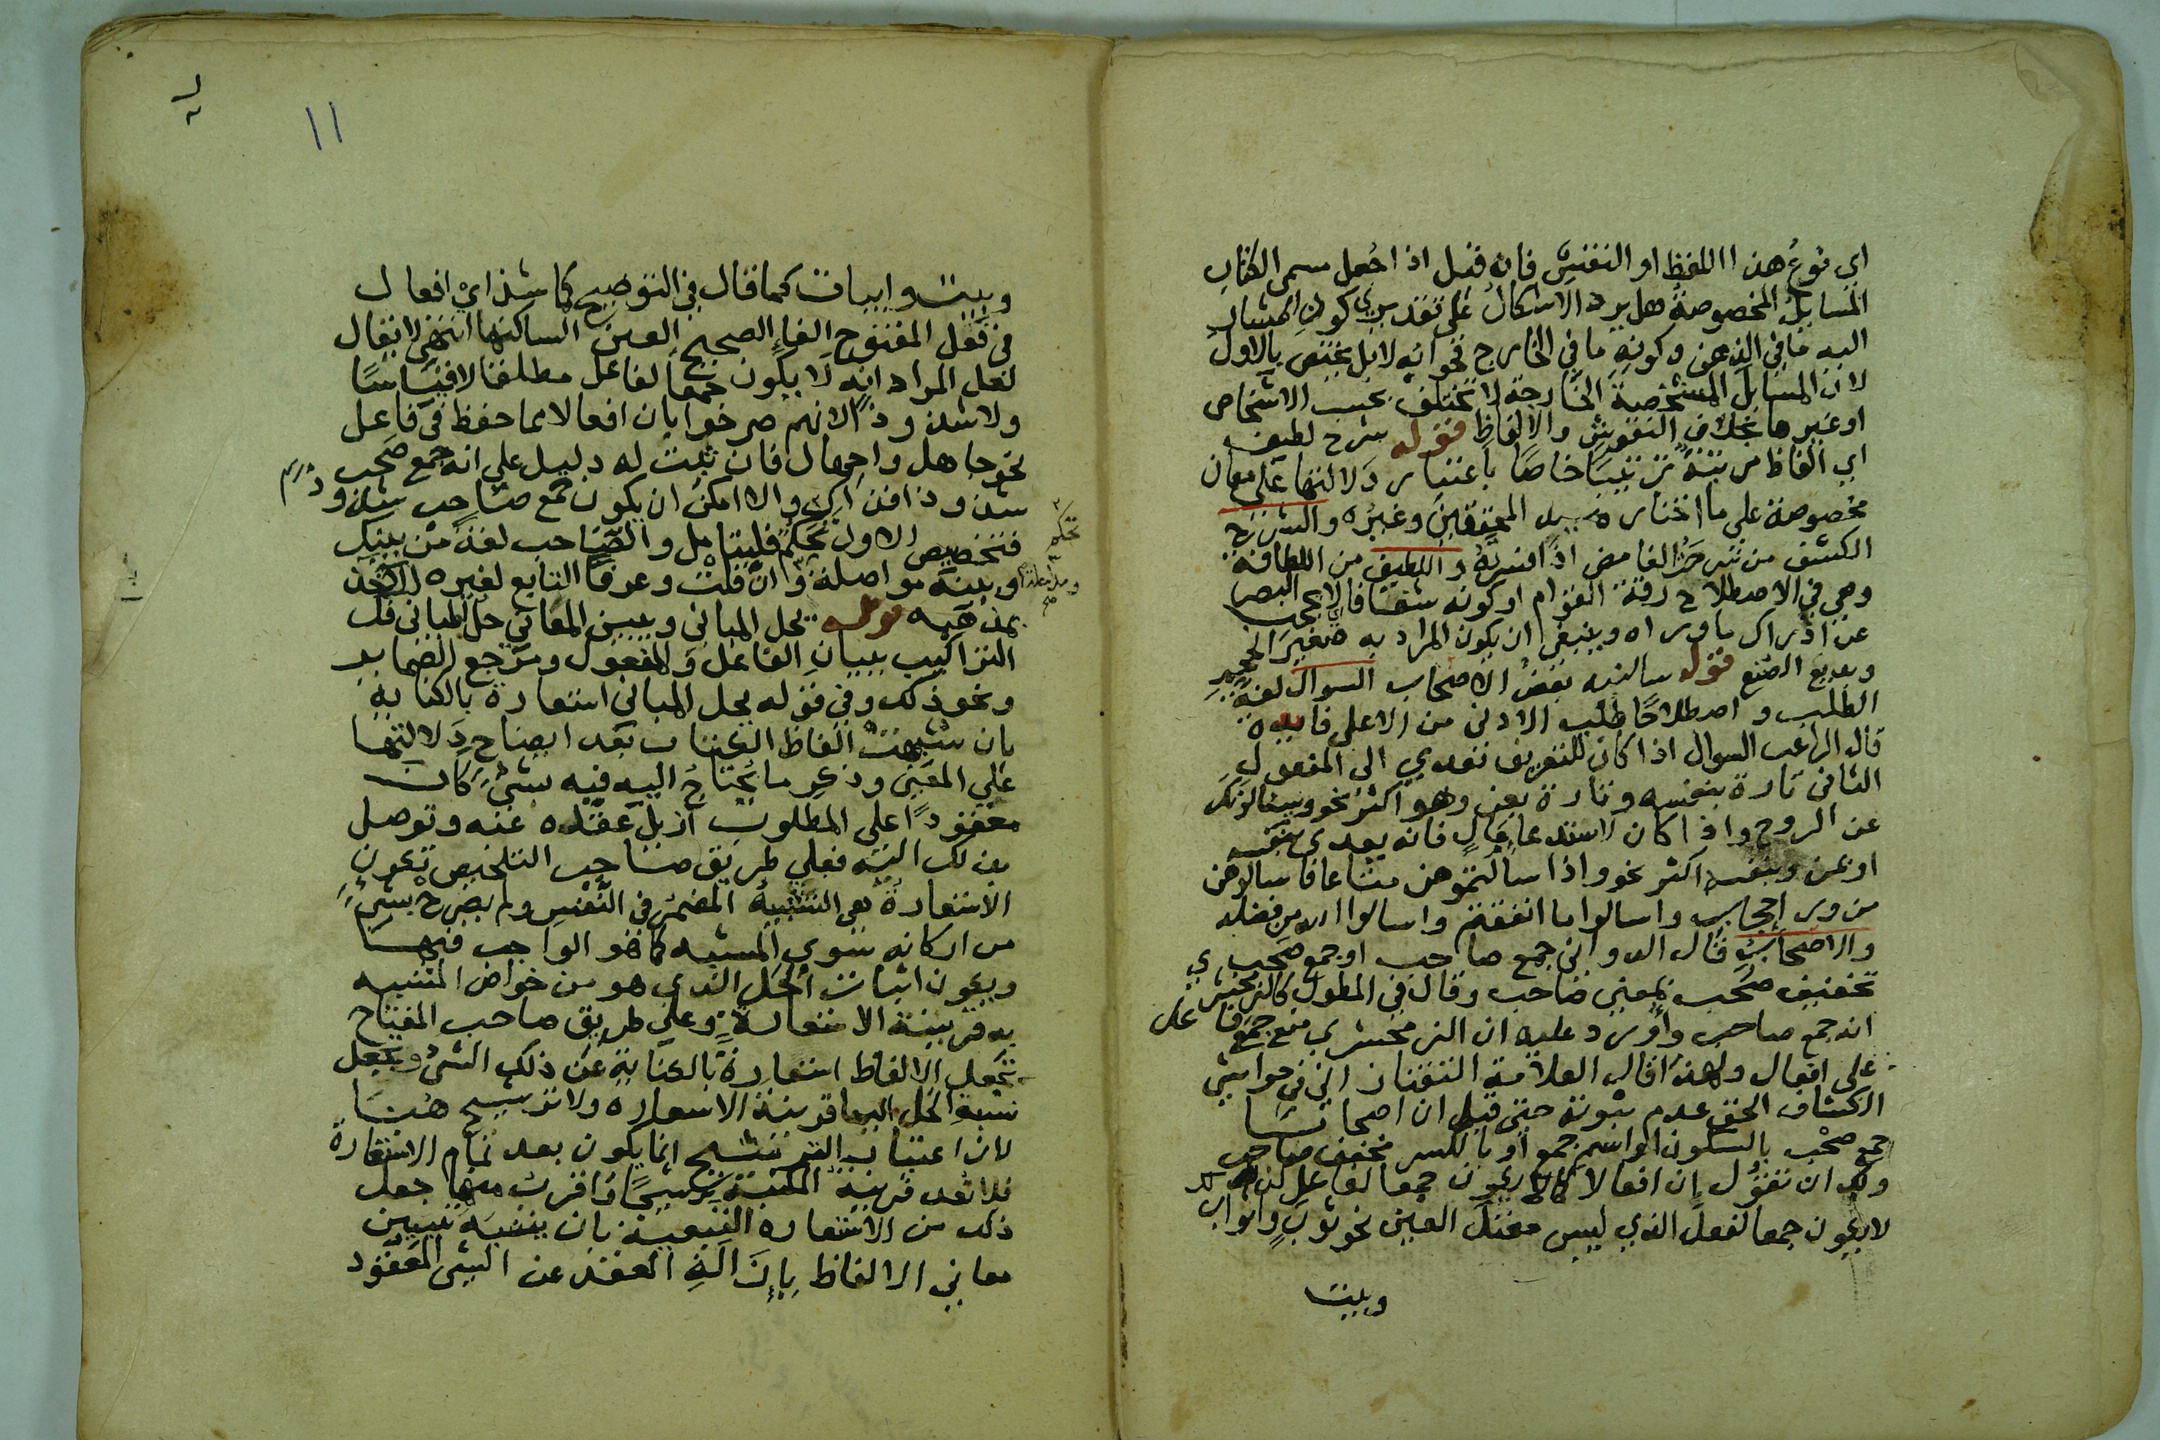 اي نوع هذا اللفظ او النقش فان قيل اذا جعل مسمى الكتاب
المسايل المخصوصة هل يرد الاشكال على تقديري كون المشار
اليه ما في الذهن وكونه ما في الخارج نحو انه لا بل يختص بالاول
لان المسايل المشخصة الخارجة لا تختلف بحسب الاشخاص
او غيرها بخلاف النقوش والالفاظ قوله شرح لطيف
اي الفاظ مرتبة ترتيبا خاصا باعتبار دلالتها على معان
مخصوصة على ما اختاره سيد المحققين وغيره والشرح
الكشف من شرحت الغامض اذا فسرته واللطيف من اللطافة
وهي في الاصطلاح رقة القوام او كونه شفافا لا يحجب البصر
عن ادراك ما وراه وينبغي ان يكون المراد به صغير الحجم
وبديع الصنع قوله سالنيه بعض الاصحاب السوال لغة
الطلب واصطلاحا طلب الادنى من الاعلى فايده
قال الراغب السوال اذا كان للتعريف تعدي الى المفعول
الثاني تارة بنفسه وتارة بعن وهو اكثر نحو ويسالونك
عن الروح واذا كان لاستدعا مال فانه يعدى بنفسه
او بمن وبنفسه اكثر نحو واذا سالتموهن متاعا فاسالوهن
من ورا حجاب واسالوا ما انفقتم واسالوا الله من فضله
والاصحاب قال الدواني جمع صاحب او جمع صحب
تخفيف صحب بمعنى صاحب وقال في المطول كالزمخشري
انه جمع صاحب واورد عليه ان الزمخشري منع جمع فاعل
على افعال ولهذا قال العلامة التفتازاني في حواشي
الكشاف الحق عدم ثبوته حتى قيل ان اصحابا
جمع صحب بالسكون اسم جمع او بالكسر مخفف صاحب
ولك ان تقول ان افعالا كما لا يكون جمعا لفاعل كذلك
لا يكون جمعا لفعل الذي ليس معتل العين نحو ثوب واثواب
وبيت
١١
وبيت وابيات كما قال في التوضيح كما شذ اي افعال
في فعل المفتوح الفاء الصحيح العين الساكنها انتهى لا يقال
لعل المراد انه لا يكون جمعا لفاعل مطلقا لا قياسا
ولا شذوذا لانهم صرحوا بان افعالا مما حفظ في فاعل
نحو جاهل واجهال فان ثبت له دليل على انه جمع صحب
شذوذا فذاك والا امكن ان يكون جمع صاحب شذوذا
فتخصيص الاول تحكم فليتامل والصاحب لغة من بينك
وبينه مواصلة وان قلت وعرفا التابع لغيره الاخذ
بمذهبه قوله يحل المباني ويبين المعاني حل المباني فك
التراكيب ببيان الفاعل والمفعول ومرجع الضماير
ونحو ذلك وفي قوله يحل المباني استعارة بالكناية
بان شبهت الفاظ الكتاب بعد ايضاح دلالتها
على المعنى وذكر ما يحتاج اليه فيه بشي كان
معقودا على المطلوب ازيل عقده عنه وتوصل
بذلك اليه فعلى طريق صاحب التلخيص تكون
الاستعارة هي التشبيه المضمر في النفس ولم يصرح بشي
من اركانه سوى المشبه كما هو الواجب فيها
ويكون اثبات الحل الذي هو من خواص المشبه
به قرينة الاستعارة وعلى طريق صاحب المفتاح
تجعل الالفاظ استعارة بالكناية عن ذلك الشي ويجعل
نسبة الحل اليها قرينة الاستعاره ولا ترشيح هنا
لان اعتبار الترشيح انما يكون بعد تمام الاستعارة
فلا تعد قرينة المكنية ترشيحا واقرب منها جعل
ذلك من الاستعاره التبعية بان يشبه تبيين
معاني الالفاظ بازالة العقد عن الشي المعقود
تحكم